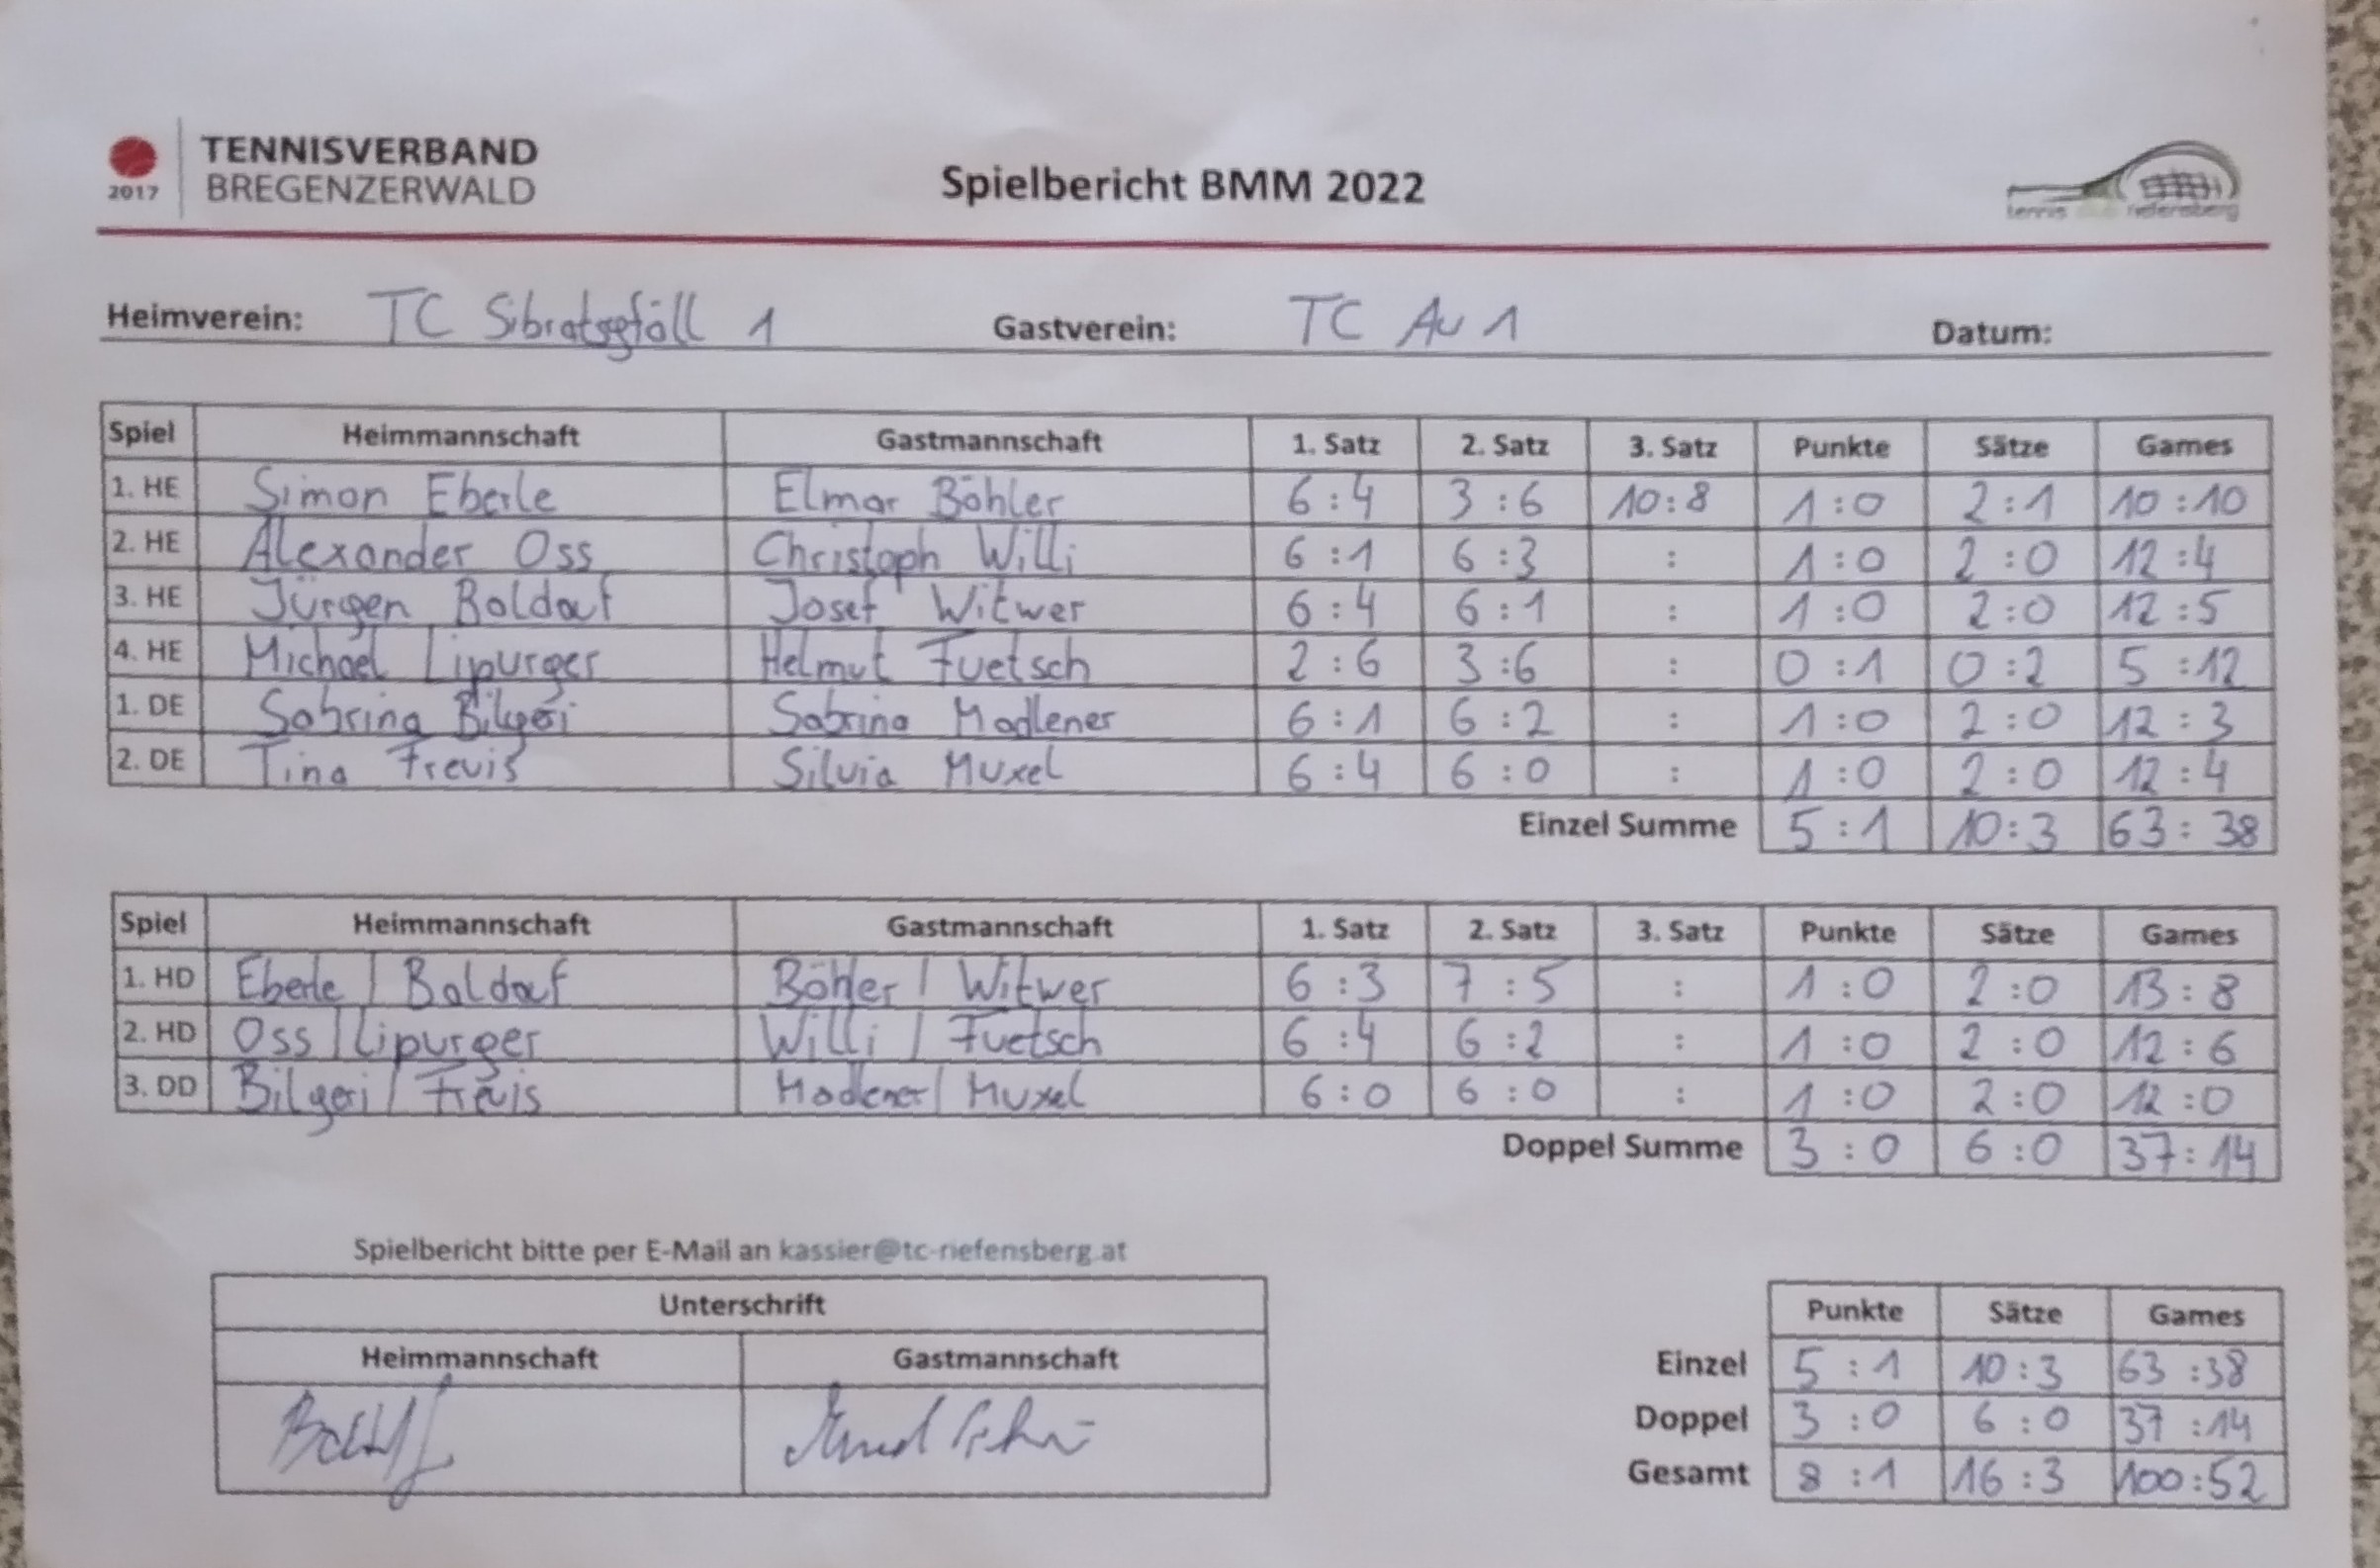 2017 TENNISVERBAND BREGENZERWALD
Spielbericht BMM 2022
tennis club riefensberg
Heimverein: TC Sibratsgfäll 1 Gastverein: TC Au 1 Datum:
Spiel Heimmannschaft Gastmannschaft 1. Satz 2. Satz 3. Satz Punkte Sätze Games
1. HE Simon Eberle Elmar Böhler 6:4 3:6 10:8 1:0 2:1 10:10
2. HE Alexander Oss Christoph Willi 6:1 6:3 : 1:0 2:0 12:4
3. HE Jürgen Baldauf Josef Witwer 6:4 6:1 : 1:0 2:0 12:5
4. HE Michael Lipurger Helmut Fuetsch 2:6 3:6 : 0:1 0:2 5:12
1. DE Sabrina Bilgeri Sabrina Madlener 6:1 6:2 : 1:0 2:0 12:3
2. DE Tina Frevis Silvia Muxel 6:4 6:0 : 1:0 2:0 12:4
Einzel Summe 5:1 10:3 63:38
Spiel Heimmannschaft Gastmannschaft 1. Satz 2. Satz 3. Satz Punkte Sätze Games
1. HD Eberle / Baldauf Böhler / Witwer 6:3 7:5 : 1:0 2:0 13:8
2. HD Oss / Lipurger Willi / Fuetsch 6:4 6:2 : 1:0 2:0 12:6
3. DD Bilgeri / Frevis Madlener / Muxel 6:0 6:0 : 1:0 2:0 12:0
Doppel Summe 3:0 6:0 37:14
Spielbericht bitte per E-Mail an kassier@tc-riefensberg.at
Unterschrift
Heimmannschaft Gastmannschaft
Punkte Sätze Games
Einzel 5:1 10:3 63:38
Doppel 3:0 6:0 37:14
Gesamt 8:1 16:3 100:52